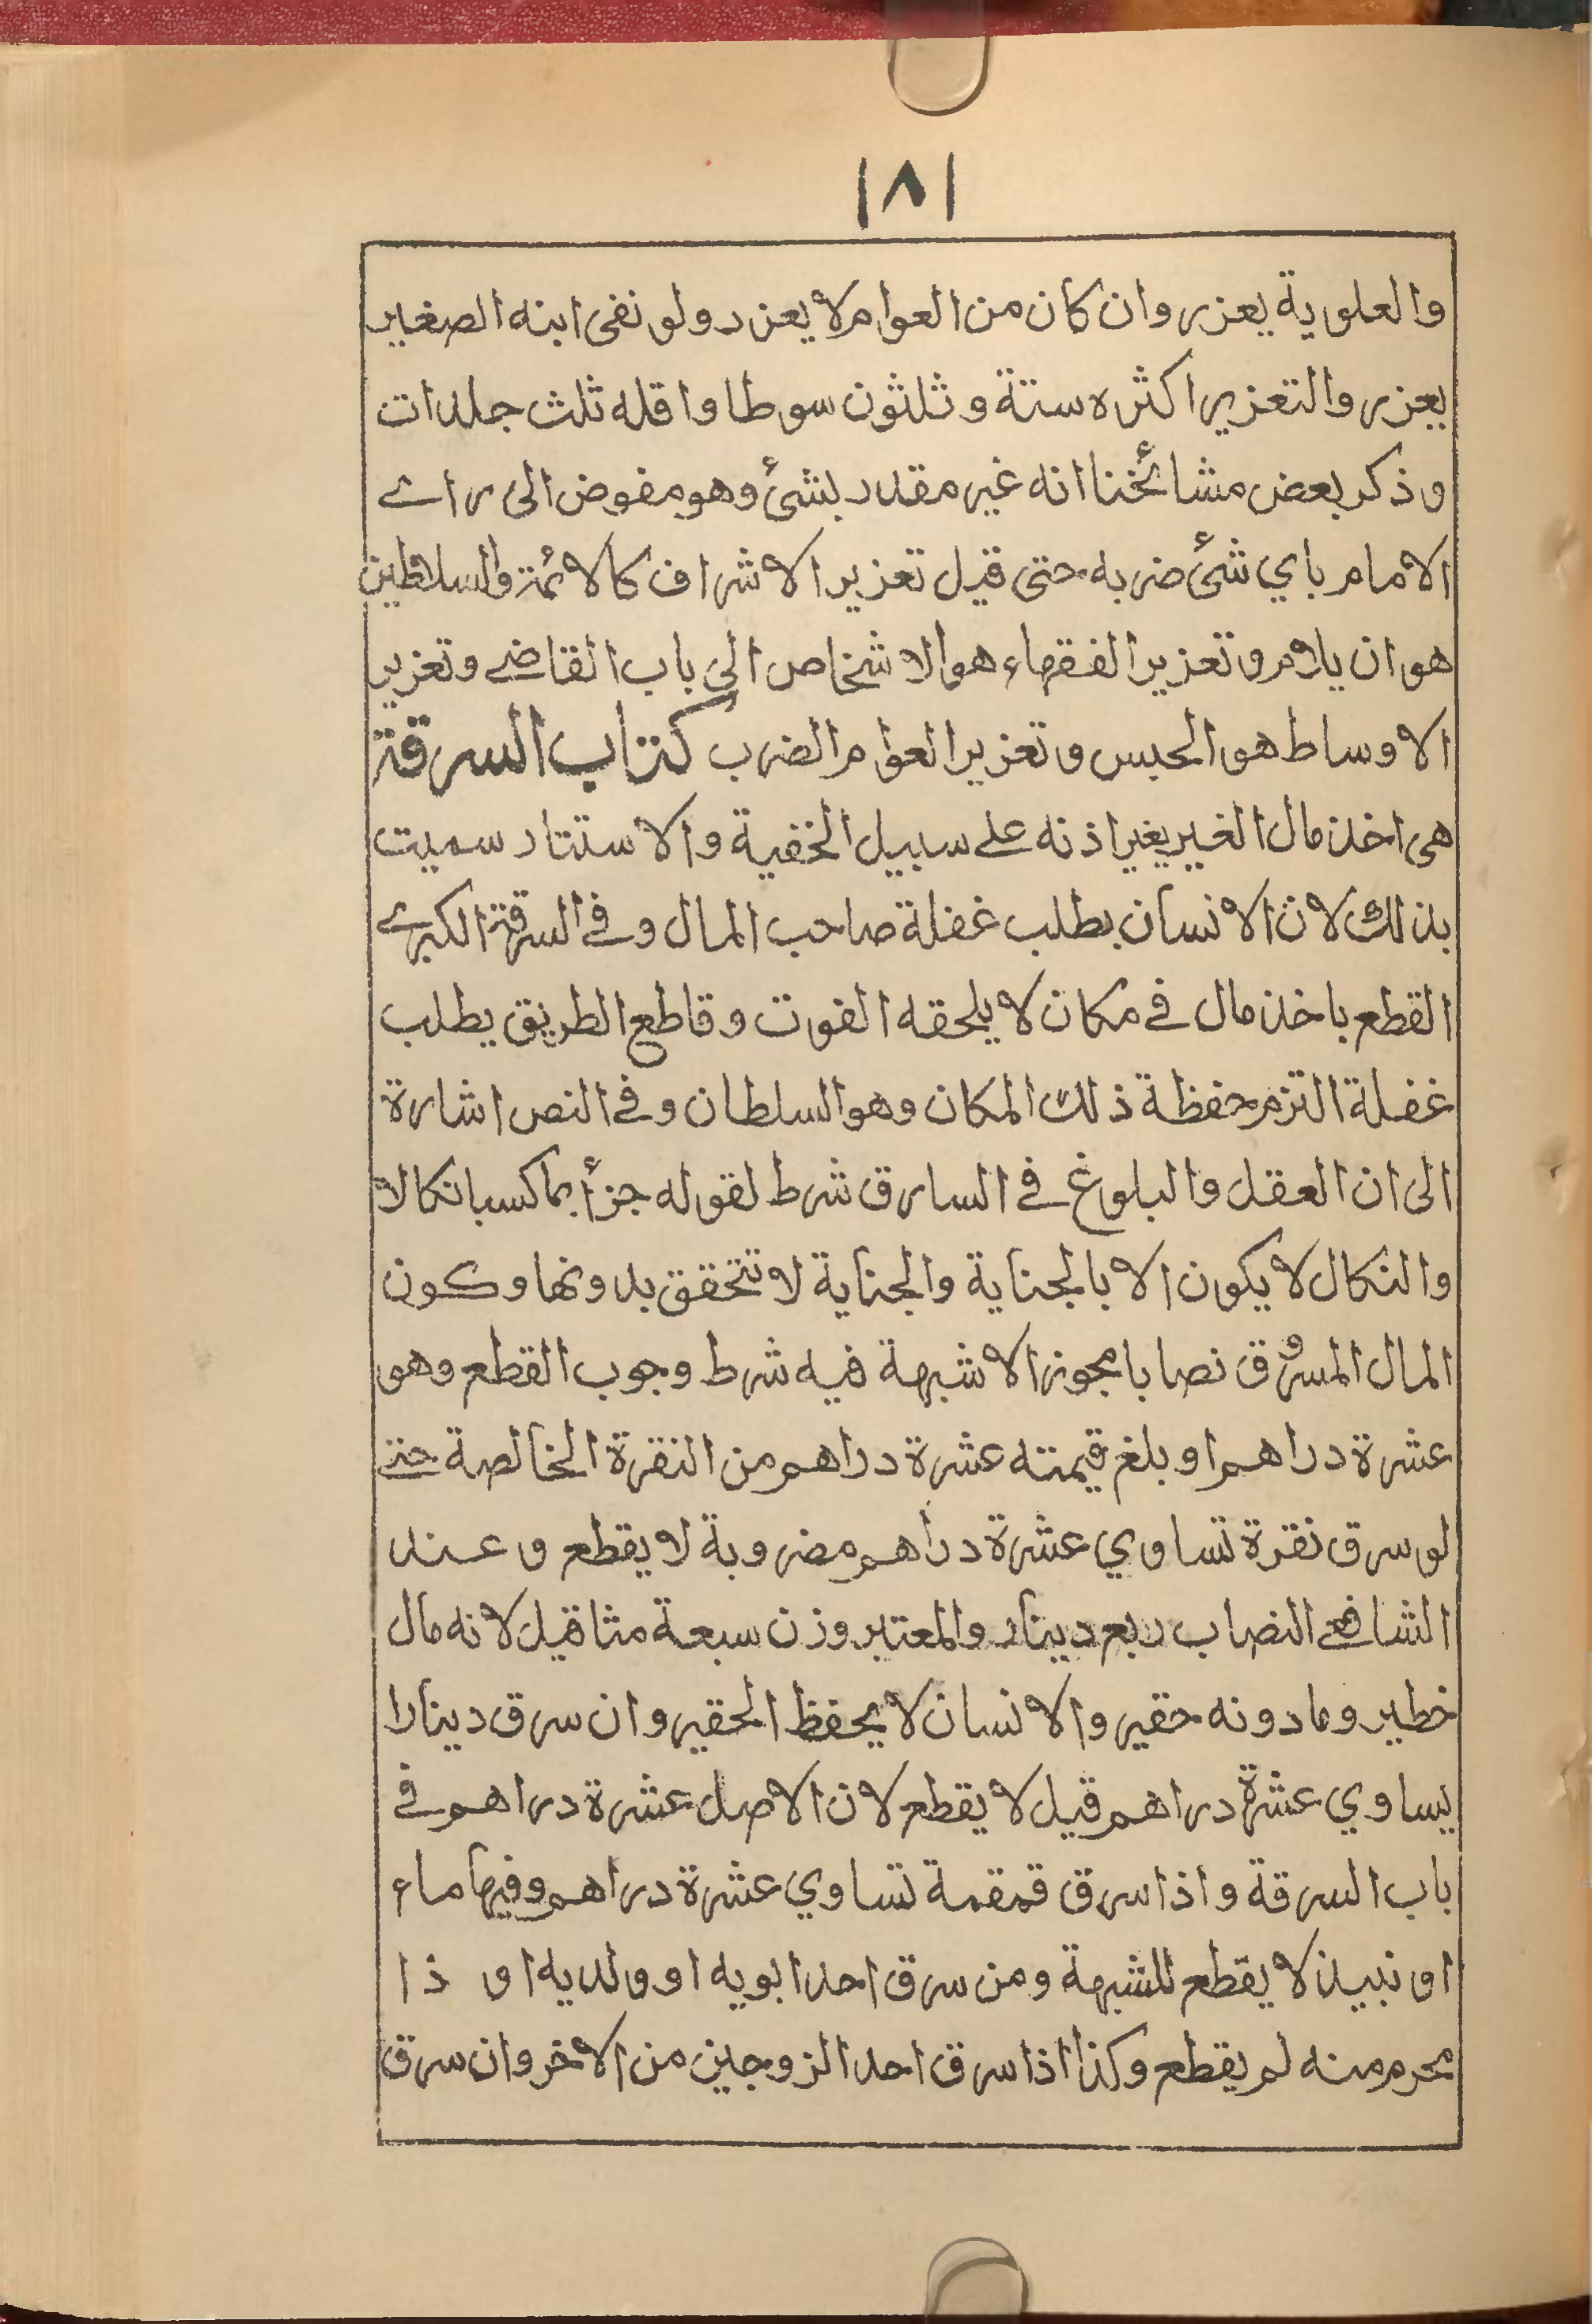 ١٨١
والعلوية يعزر وان كان من العوام لا يعزر ولو نفى ابنه الصغير
يعزر والتعزير اكثره ستة وثلثون سوطا واقله ثلث جلدات
وذكر بعض مشائخنا انه غير مقدر بشئ وهو مفوض الى راے
الامام باي شئ ضربه حتى قيل تعزير الاشراف كالائمة والسلاطين
هو ان يلام وتعزير الفقهاء هو الاشخاص الى باب القاضے وتعزير
الاوساط هو الحبس وتعزير العوام الضرب كتاب السرقة
هى اخذ مال الغير بغير اذنه علے سبيل الخفية والاستتار سميت
بذلك لان الانسان يطلب غفلة صاحب المال وفے السرقة الكبرے
القطع باخذ مال فے مكان لا يلحقه الغوث وقاطع الطريق يطلب
غفلة التزم حفظة ذلك المكان وهو السلطان وفے النص اشارة
الى ان العقل والبلوغ فے السارق شرط لقوله جزأ بما كسبا نكالا
والنكال لا يكون الا بالجناية والجناية لا تتحقق بدونها وكون
المال المسروق نصابا محوزا لا شبهة فيه شرط وجوب القطع وهو
عشرة دراهم او بلغ قيمته عشرة دراهم من النقرة الخالصة حتے
لو سرق نقرة تساوي عشرة دراهم مضروبة لا يقطع وعند
الشافعے النصاب ربع دينار والمعتبر وزن سبعة مثاقيل لانه مال
خطير وما دونه حقير والانسان لا يحفظ الحقير وان سرق دينارا
يساوي عشرة دراهم قيل لا يقطع لان الاصل عشرة دراهم فے
باب السرقة واذا سرق قمقمة تساوي عشرة دراهم وفيها ماء
او نبيذ لا يقطع للشبهة ومن سرق احد ابويه او ولديه او ذا
محرم منه لم يقطع وكذا اذا سرق احد الزوجين من الاخر وان سرق